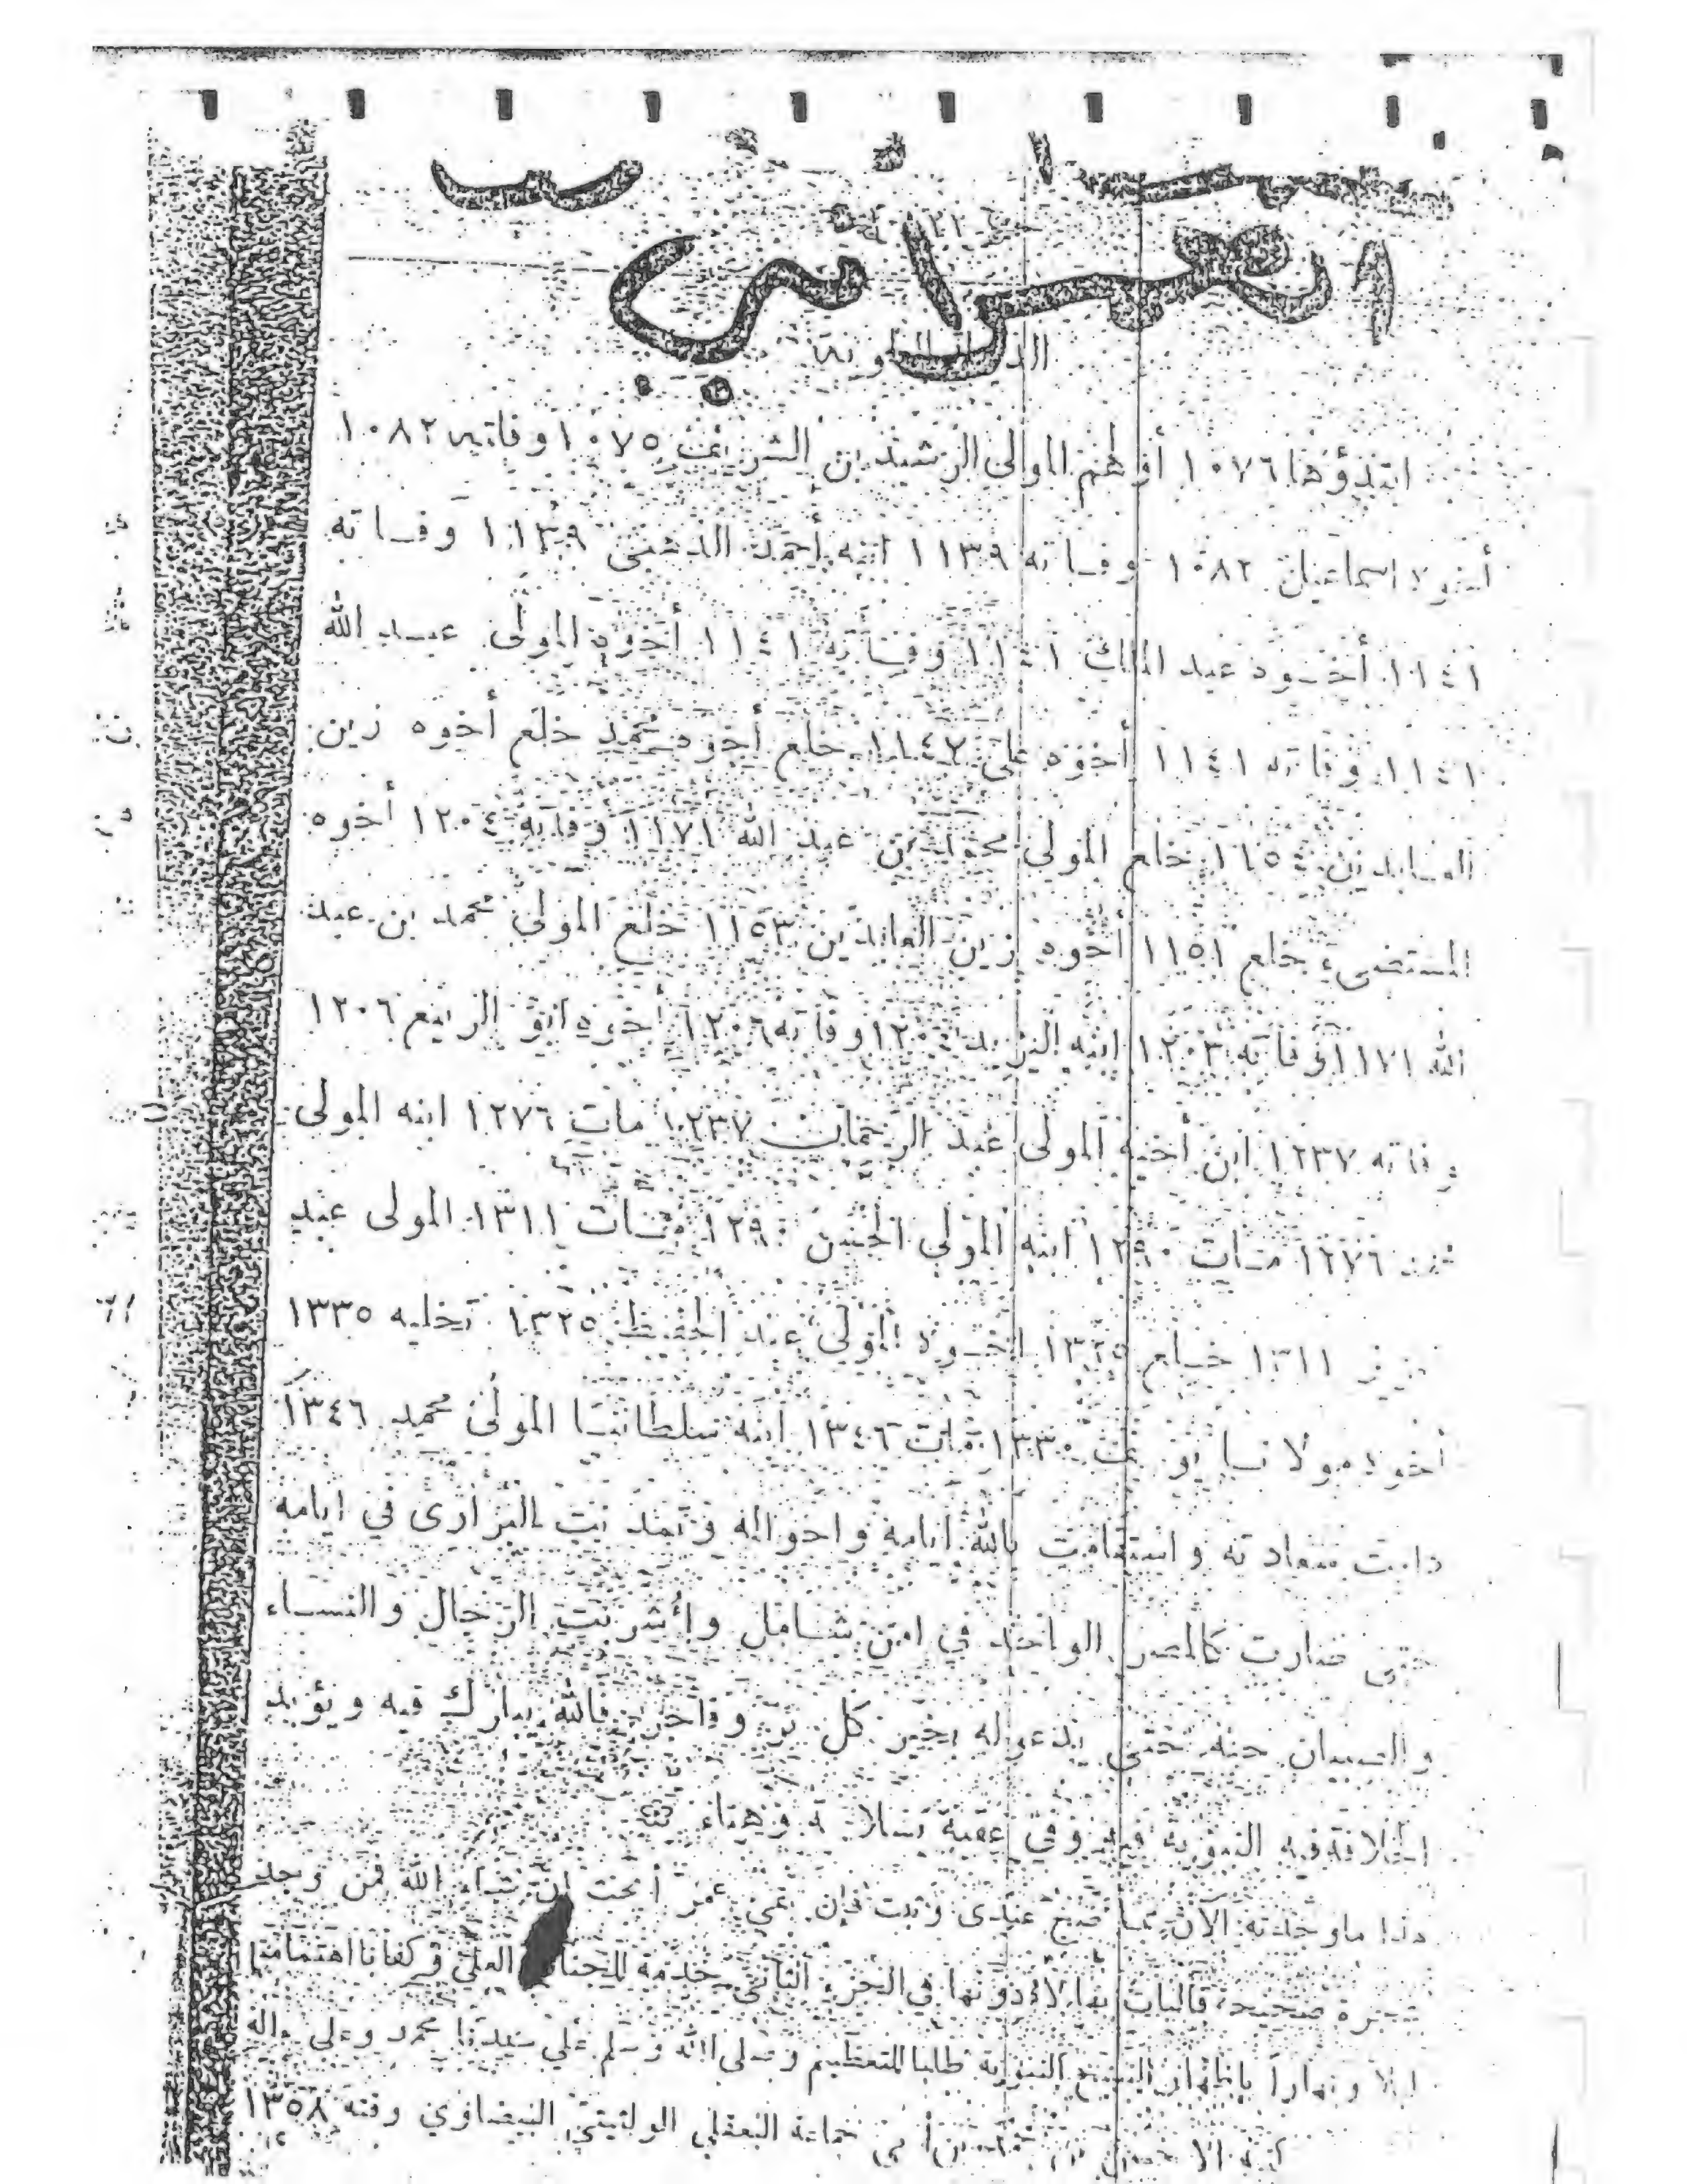 ابتدؤها ١٠٧٦ أولهم المولى الرشيد بن الشريف ١٠٧٥ وفاته ١٠٨٢
أخوه اسماعيل ١٠٨٢ وفاته ١١٣٩ ابنه أحمد الذهبي ١١٣٩ وفاته
١١٤١ أخوه عبد الملك ١١٤١ وفاته ١١٤١ أخوه المولى عبد الله
١١٤١ وفاته ١١٤١ أخوه على ١١٤٧ خلع أخوه محمد خلع أخوه زين
العابدين ١١٥٤ خلع المولى محمد بن عبد الله ١١٧١ وفاته ١٢٠٤ أخوه
المستضىء خلع ١١٥١ أخوه زين العابدين ١١٥٣ خلع المولى محمد بن عبد
الله ١١٧١ وفاته ١٢٠٣ ابنه اليزيد ١٢٠٤ وفاته ١٢٠٦ أخوه ابو الربيع ١٢٠٦
وفاته ١٢٣٧ ابن أخيه المولى عبد الرحمان ١٢٣٧ مات ١٢٧٦ ابنه المولى
محمد ١٢٧٦ مات ١٢٩٠ ابنه المولى الحسن ١٢٩٠ مات ١٣١١ المولى عبد
العزيز ١٣١١ خلع ١٣٢٥ اخوه المولى عبد الحفيظ ١٣٢٥ تخليه ١٣٣٥
أخوه مولانا يوسف ١٣٣٠ مات ١٣٤٦ ابنه سلطاننا المولى محمد ١٣٤٦
دامت سعادته واستقامت بالله ايامه واحواله وتمدنت البرارى في ايامه
حتى صارت كالمصر الواحد في امن شامل وأشربت الرجال والنساء
والصبيان حبه حتى يدعو له بخير كل بر وفاجر فالله يبارك فيه ويؤيد
الخلافة النبوية وفي عقبه بسلامة وهناء
هذا ما وجدته الآن مما صح عندى وثبت فإن عمر أبحث ان شاء الله فمن وجد
شجرة صحيحة فاليات بها لادونها في الجزء الثانى خدمة للجناب العلي وكفانا اهتمامنا
ليلا ونهارا باظهار النبوية طلبا للتعظيم وصلى الله وسلم على سيدنا محمد وعلى ءاله
جماعة البعقلي البيضاوي وقته ١٣٥٨